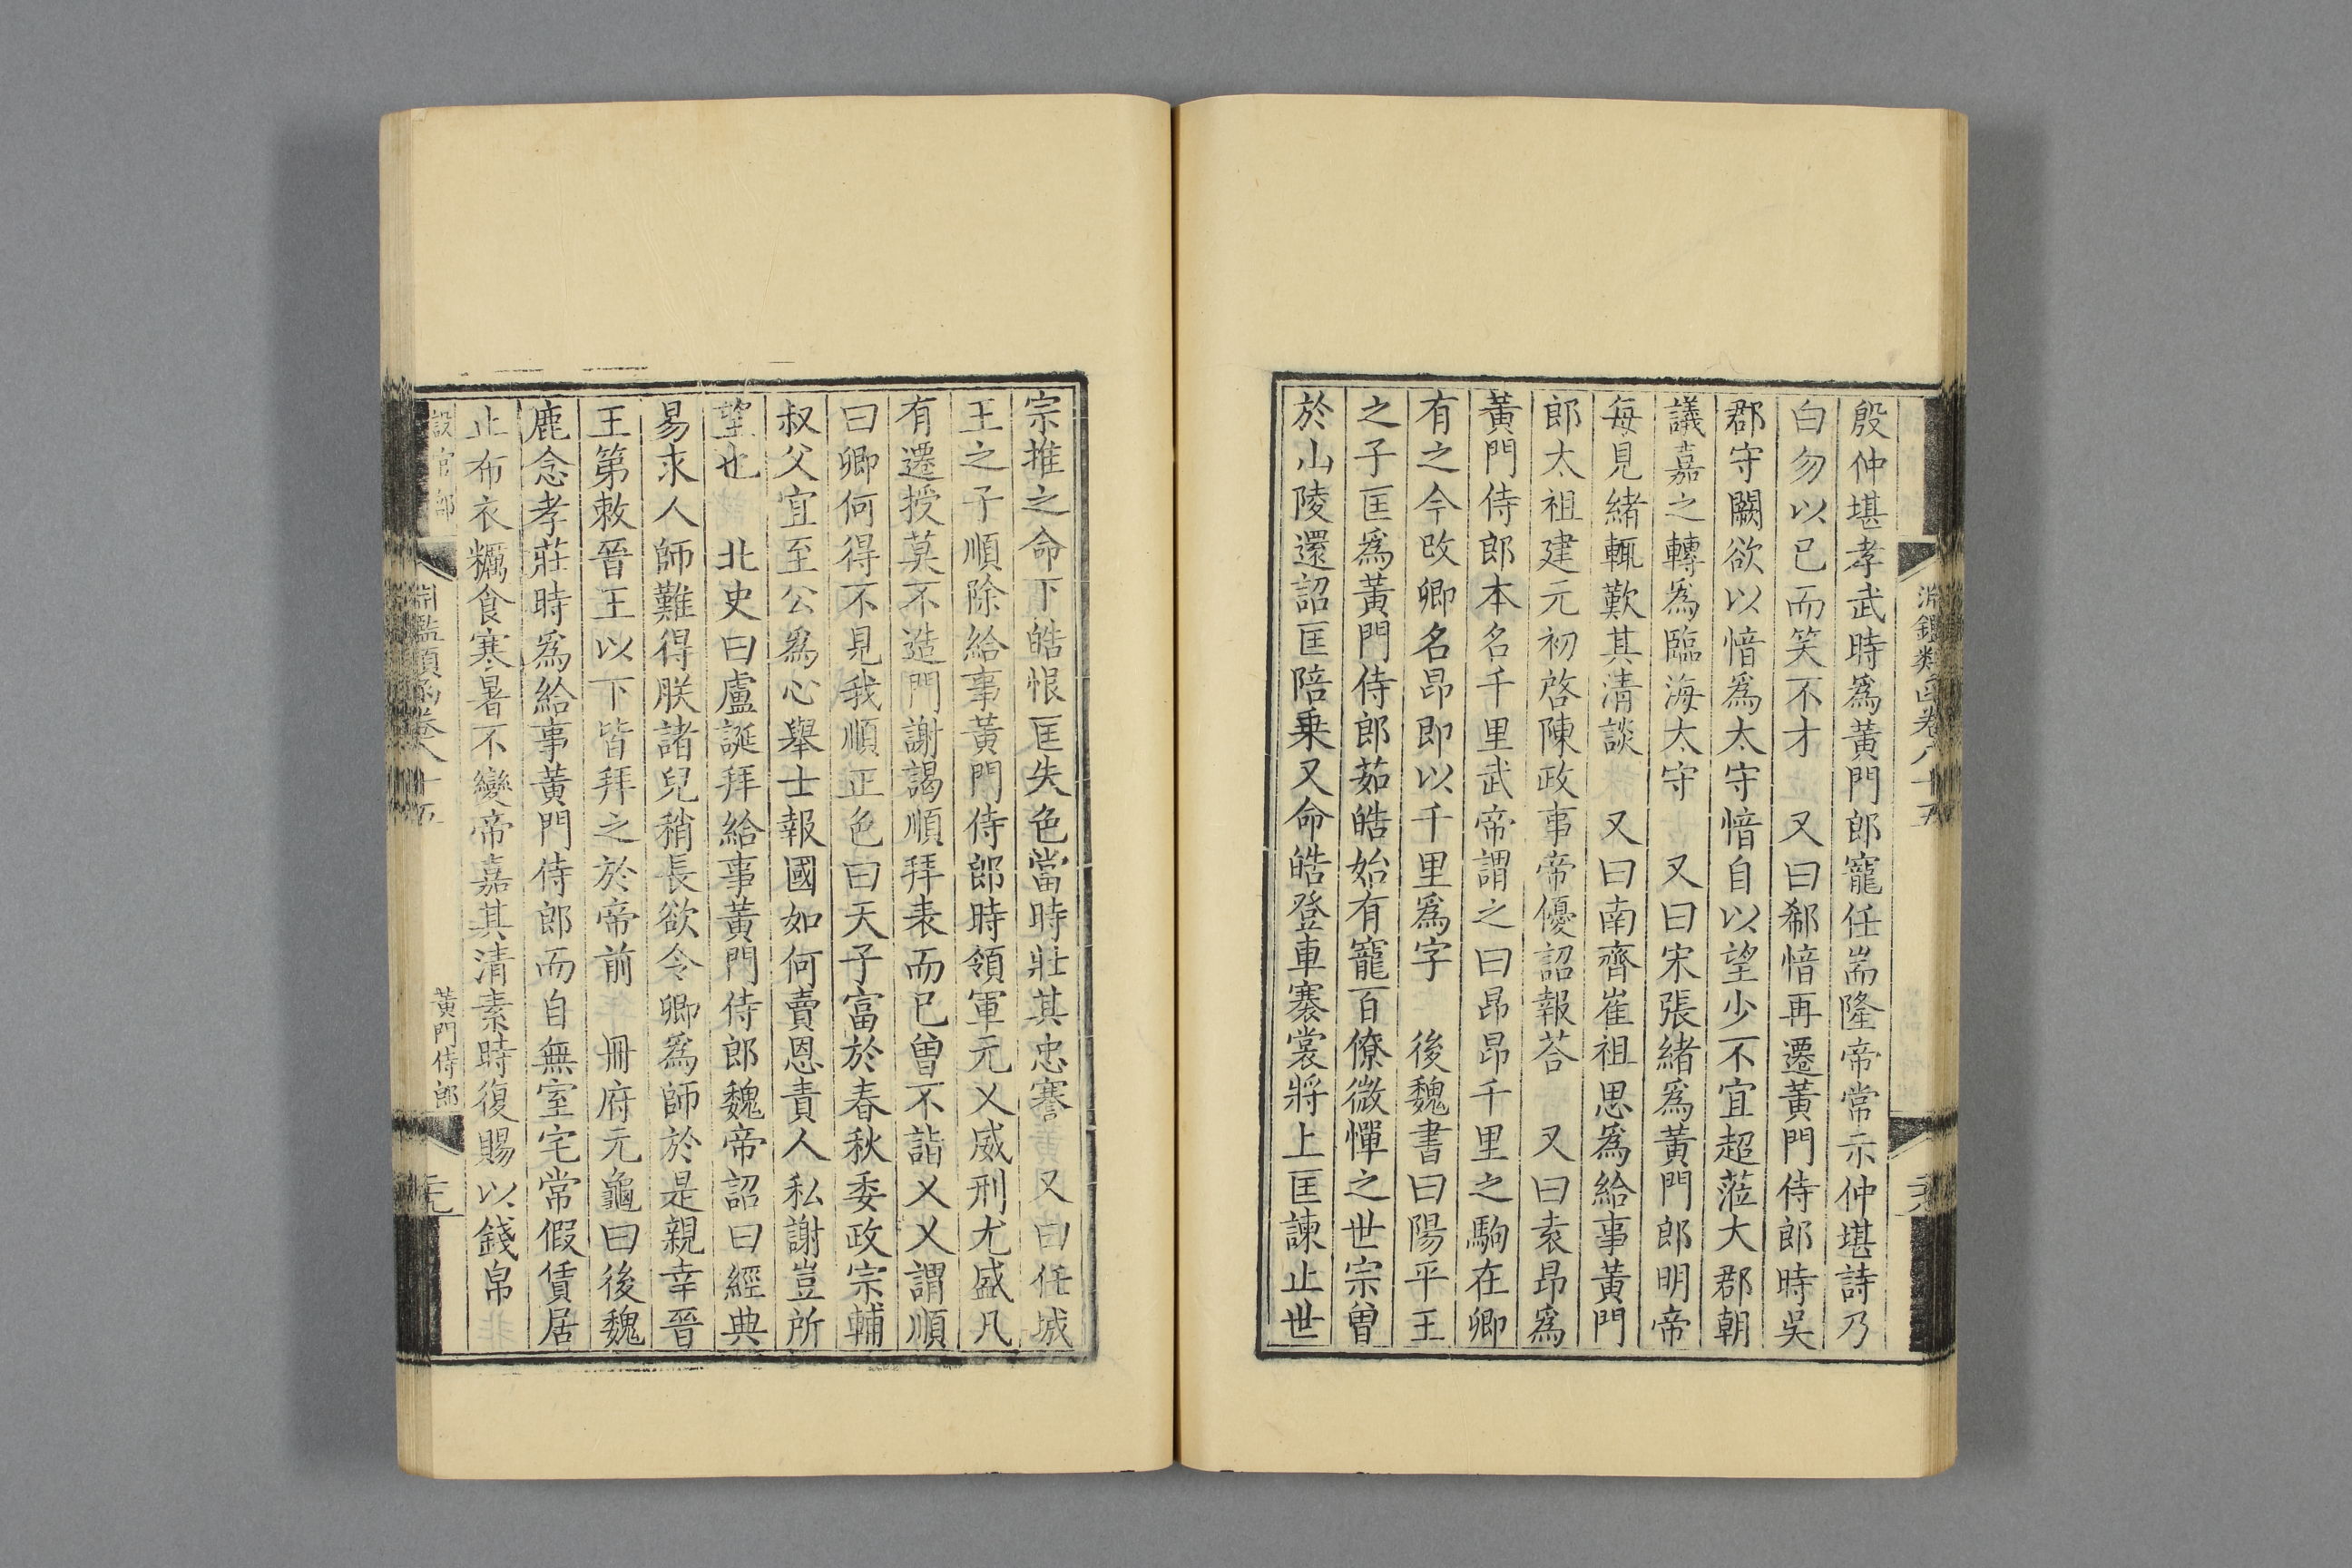 淵鑑類函卷八十五
殷仲堪孝武時爲黃門郎寵任耑隆帝常示仲堪詩乃
白勿以已而笑不才 又曰郗愔再遷黃門侍郎時吳
郡守闕欲以愔爲太守愔自以望少不宜超蒞大郡朝
議嘉之轉爲臨海太守 又曰宋張緒爲黃門郎明帝
每見緒輒歎其清談 又曰南齊崔祖思爲給事黃門
郎太祖建元初啓陳政事帝優詔報荅 又曰袁昂爲
黃門侍郎本名千里武帝謂之曰昂昂千里之駒在卿
有之今改卿名昂即以千里爲字 後魏書曰陽平王
之子匡爲黃門侍郎茹皓始有寵百僚微憚之世宗曽
於山陵還詔匡陪乗又命皓登車褰裳將上匡諫止世
宗推之命下皓恨匡失色當時壯其忠謇 又曰任城
王之子順除給事黃門侍郎時領軍元乂威刑尤盛凡
有遷授莫不造門謝謁順拜表而已曽不詣乂乂謂順
曰卿何得不見我順正色曰天子富於春秋委政宗輔
叔父宜至公爲心舉士報國如何賣恩責人私謝豈所
望也 北史曰盧誕拜給事黃門侍郎魏帝詔曰經典
易求人師難得朕諸兒稍長欲令卿爲師於是親幸晉
王第敕晉王以下皆拜之於帝前 冊府元龜曰後魏
鹿悆孝莊時爲給事黃門侍郎而自無室宅常假賃居
止布衣糲食寒暑不變帝嘉其清素時復賜以錢帛
設官部
淵鑑類函卷八十五
黃門侍郎